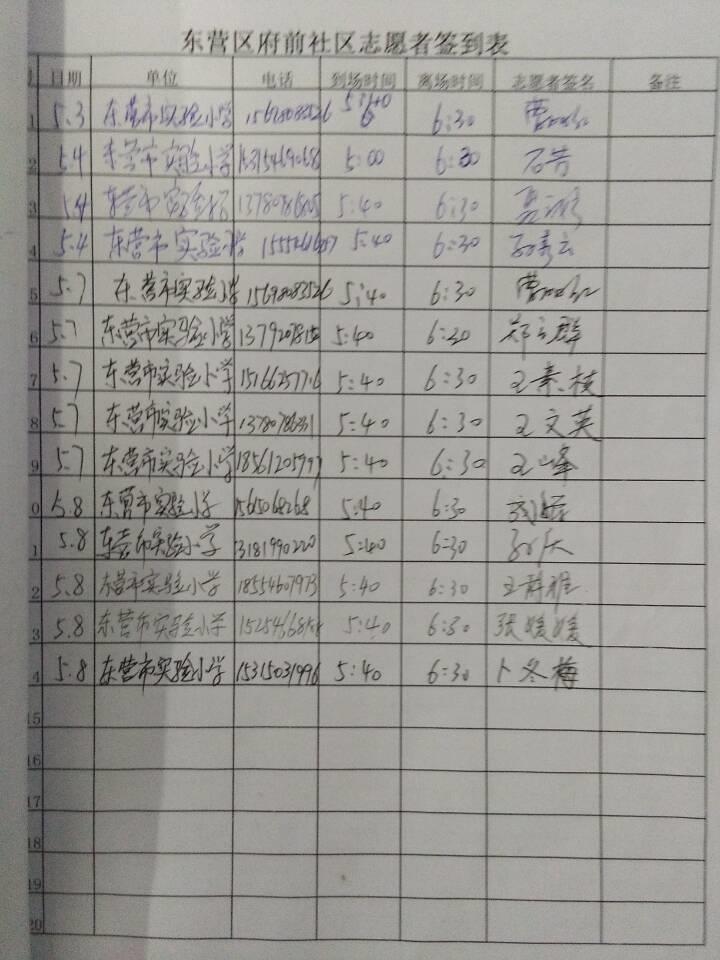 东营区府前社区志愿者签到表
日期 单位 电话 到场时间 离场时间 志愿者签名 备注
1 5.3 东营市实验小学 15698083526 6:30
2 5.4 东营市实验小学 5:00 6:30 石芳
3 5.4 东营市实验小学 5:40 6:30
4 5.4 东营市实验小学 5:40 6:30
5 5.7 东营市实验小学 15698083526 5:40 6:30
6 5.7 东营市实验小学 5:40 6:30 郑立群
7 5.7 东营市实验小学 15166257716 5:40 6:30 王素枝
8 5.7 东营市实验小学 5:40 6:30 王文英
9 5.7 东营市实验小学 18561205997 5:40 6:30 王峰
0 5.8 东营市实验小学 5:40 6:30
1 5.8 东营市实验小学 13181990220 5:40 6:30
2 5.8 东营市实验小学 18554607973 5:40 6:30 王静雅
3 5.8 东营市实验小学 5:40 6:30 张媛媛
4 5.8 东营市实验小学 15315031996 5:40 6:30 卜冬梅
15
16
17
18
19
20